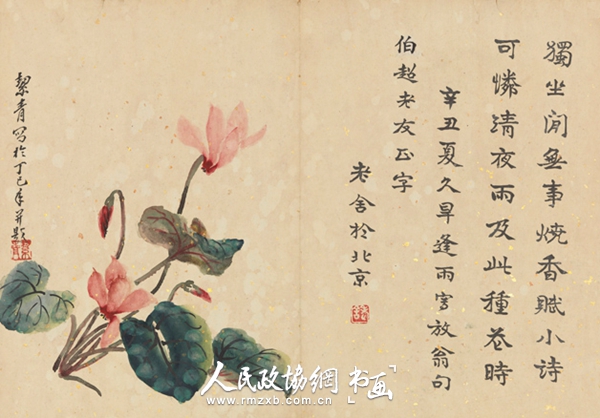 獨坐閒無事燒香賦小詩
可憐清夜雨及此種花時
辛丑夏久旱逢雨寫放翁句
伯超老友正字
老舍於北京
絜青寫於丁巳年並題
人民政協網 书画
www.rmzxb.com.cn